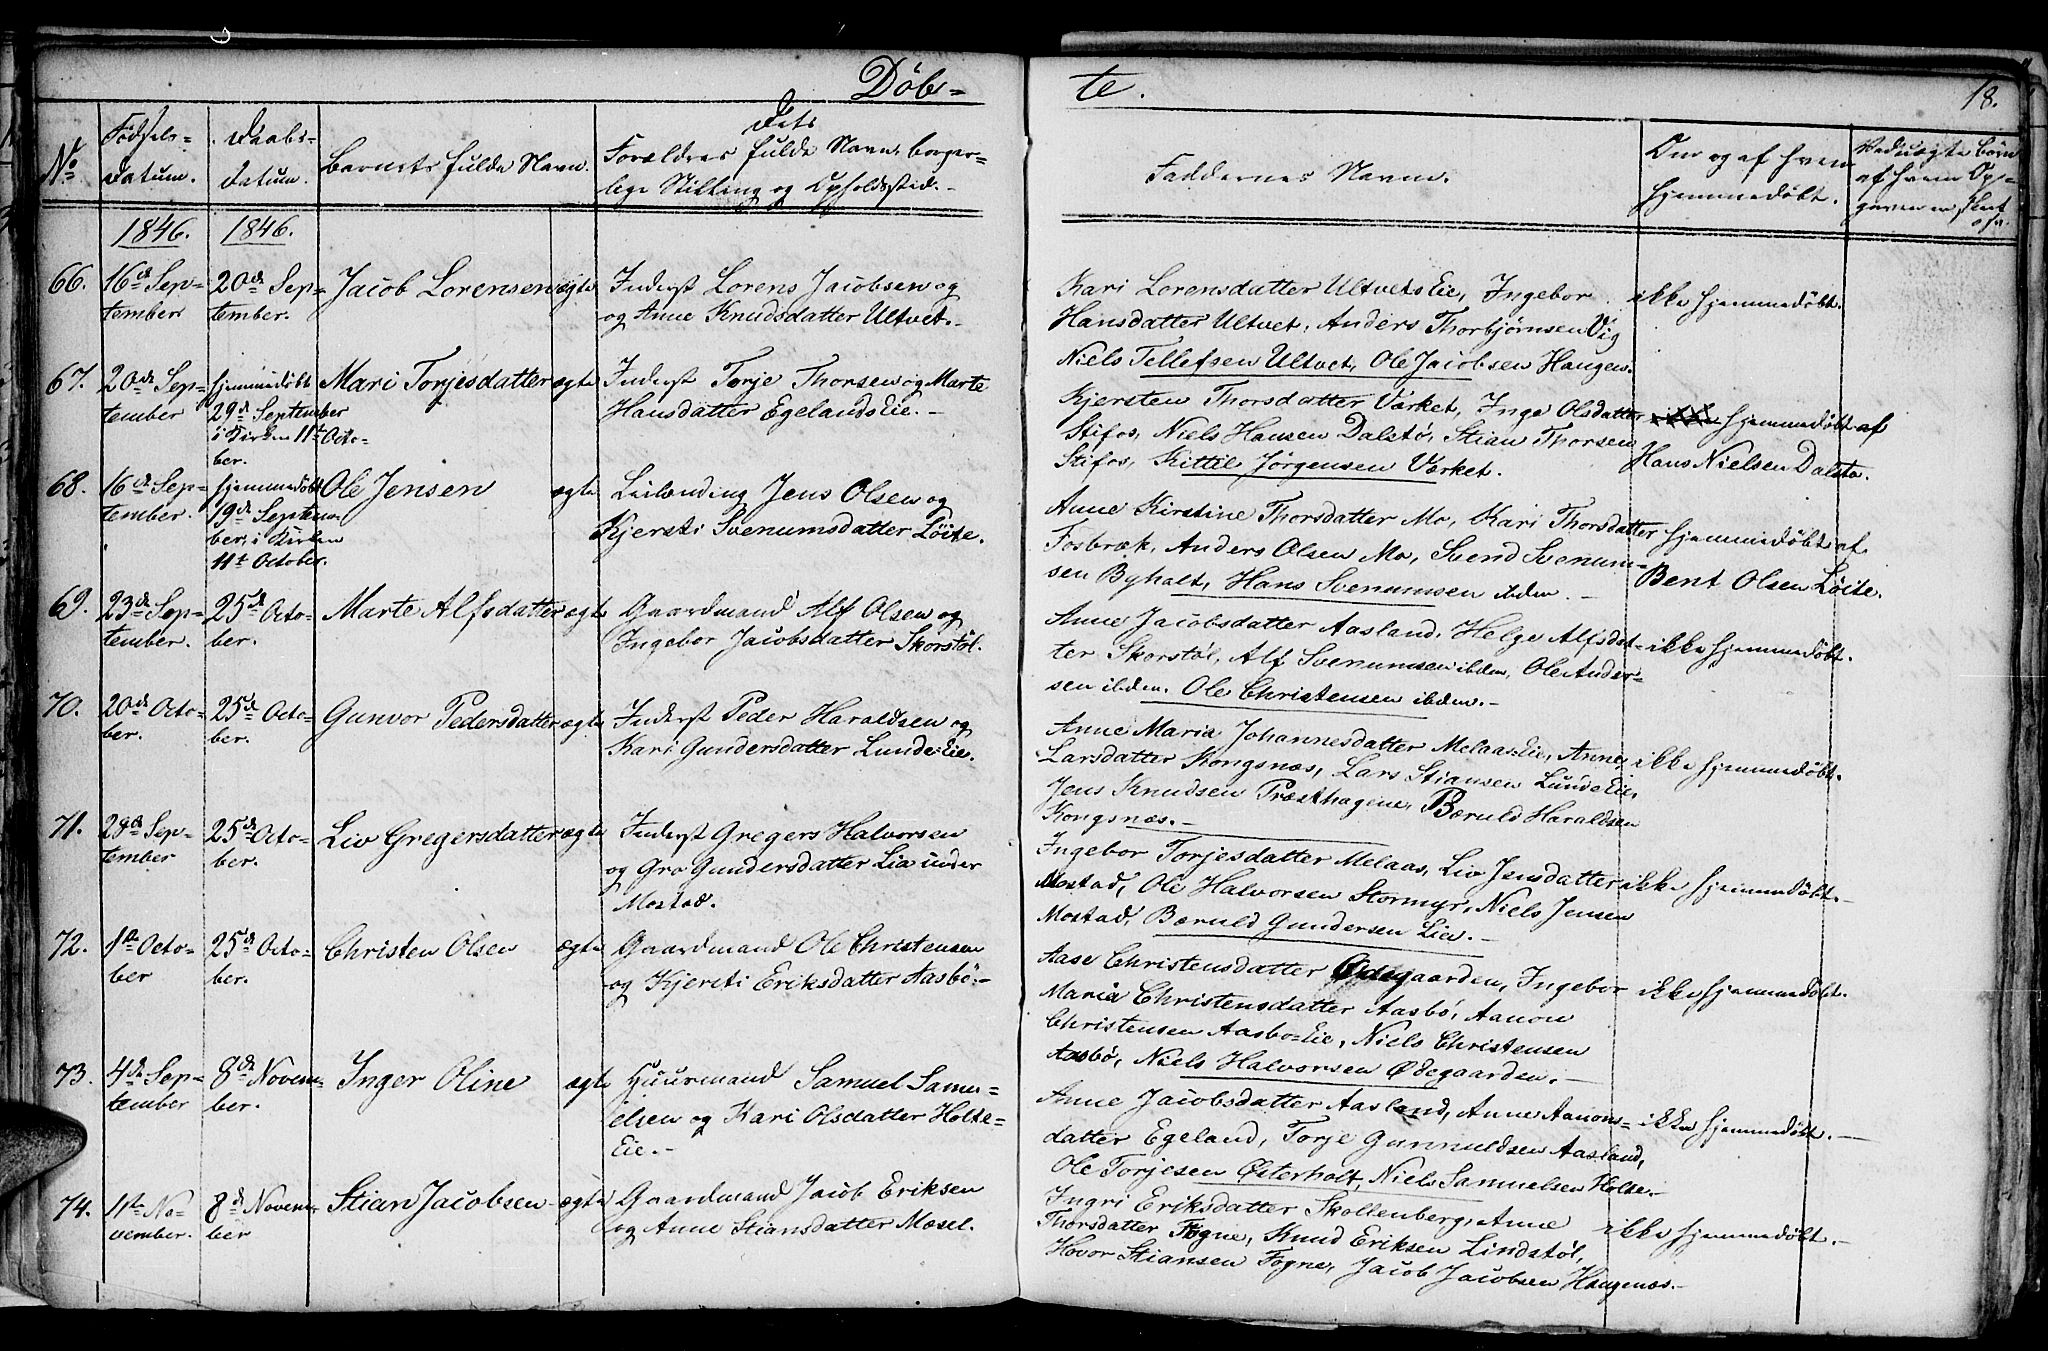 Døb=
te.
18.
No
Fødsels=
datum.
Daabs=
datum.
Barnets fulde Navn.
dets
Forældres fulde Navn, borger=
lige Stilling og Opholdssted.-
Faddernes Navne.
Om og af hvem
hjemmedøbt.
Ved uægte Børn
af hvem Op=
1846.
1846.
66.
16de Sep=
tember
20de Sep=
tember.
Jacob Lorensen
ægte
Inderst Lorens Jacobsen og
og Anne Knudsdatter Ultvet.-
Kari Lorensdatter Ultvets Eie, Ingebor
Hansdatter Ultvet, Anders Thorbjørnsen Vig
Niels Tellefsen Ultvet, Ole Jacobsen Haugen.
ikke hjemmedøbt.
67.
20de Sep=
tember
hjemmedøbt
29de September
i Kirken 11te Octo=
ber.
Mari Torjesdatter
ægte
Inderst Torje Thorsen og Marte
Hansdatter Egelands Eie.-
Kjersten Thorsdatter Værket, Inge Olsdatter
Stifos, Niels Hansen Dalstø, Stian Thorsen
Stifos, Kittil Jørgensen Værket.
hjemmedøbt af
Hans Nielsen Dalstø.
68.
16de Sep=
tember.
hjemmedøbt
19de Septem=
ber, i Kirken
11te October.
Ole Jensen
ægte
Leilending Jens Olsen og
Kjersti Svenumsdatter Löite.
Anne Kirstine Thorsdatter Mo, Kari Thorsdatter
Fosbræk, Anders Olsen Mo, Svend Svenum=
sen Byholt, Hans Svenumsen ibden.-
hjemmedøbt af
Bent Olsen Löite.
69.
23de Sep=
tember.
25de Octo=
ber.
Marte Alfsdatter
ægte
Gaardmand Alf Olsen og
Ingebor Jacobsdatter Skorstøl.
Anne Jacobsdatter Aasland, Helge Alfsdat=
ter Skorstøl, Alf Svenumsen ibden, Ole Ander=
sen ibden. Ole Christensen ibden.-
ikke hjemmedøbt.
70.
20de Octo=
ber.
25de Octo=
ber.
Gunvor Pedersdatter
ægte
Inderst Peder Haraldsen og
Kari Gundersdatter Lunde Eie.
Anne Maria Johannesdatter Melaas Eie, Anne
Larsdatter Kongsnæs, Lars Stiansen Lunde Eie,
Jens Knudsen Præsthagene, Bæruld Haraldsen
Kongsnæs.-
ikke hjemmedøbt.
71.
28de Sep=
tember
25de Octo=
ber.
Liv Gregersdatter
ægte
Inderst Gregers Halvorsen
og Gro Gundersdatter Lia under
Mostad.
Ingebor Torjesdatter Melaas, Liv Jensdatter
Mostad, Ole Halvorsen Stormyr, Niels Jensen
Mostad, Bæruld Gundersen Lia.-
ikke hjemmedøbt.-
72.
1te Octo=
ber
25de Octo=
ber.
Christen Olsen
ægte
Gaardmand Ole Christensen
og Kjersti Eriksdatter Aasbö.-
Aase Christensdatter Ødegaarden, Ingebor
Maria Christensdatter Aasbö, Aanon
Christensen Aasbo=Eie, Niels Christensen
Aasbö, Niels Halvorsen Ødegaarden.-
ikke hjemmedøbt.
73.
4de Sep=
tember
8de Novem=
ber.
Inger Oline
ægte
Huusmand Samuel Samu=
elsen og Kari Olsdatter Holte=
Eie.-
Anne Jacobsdatter Aasland, Anne Aanons=
datter Egeland, Torje Gunnuldsen Aasland,
Ole Torjesen Østerholt, Niels Samuelsen Holte.-
ikke hjemmedøbt.-
74.
11te No=
vember.
8de Novem=
ber
Stian Jacobsen
ægte
Gaardmand Jacob Eriksen
og Anne Stiansdatter Mæsel.
Ingri Eriksdatter Skollenberg, Anne
Thorsdatter Fogne, Knud Eriksen Lindstøl,
Hovor Stiansen Fogne, Jacob Jacobsen Haugenæs.-
ikke hjemmedøbt.-